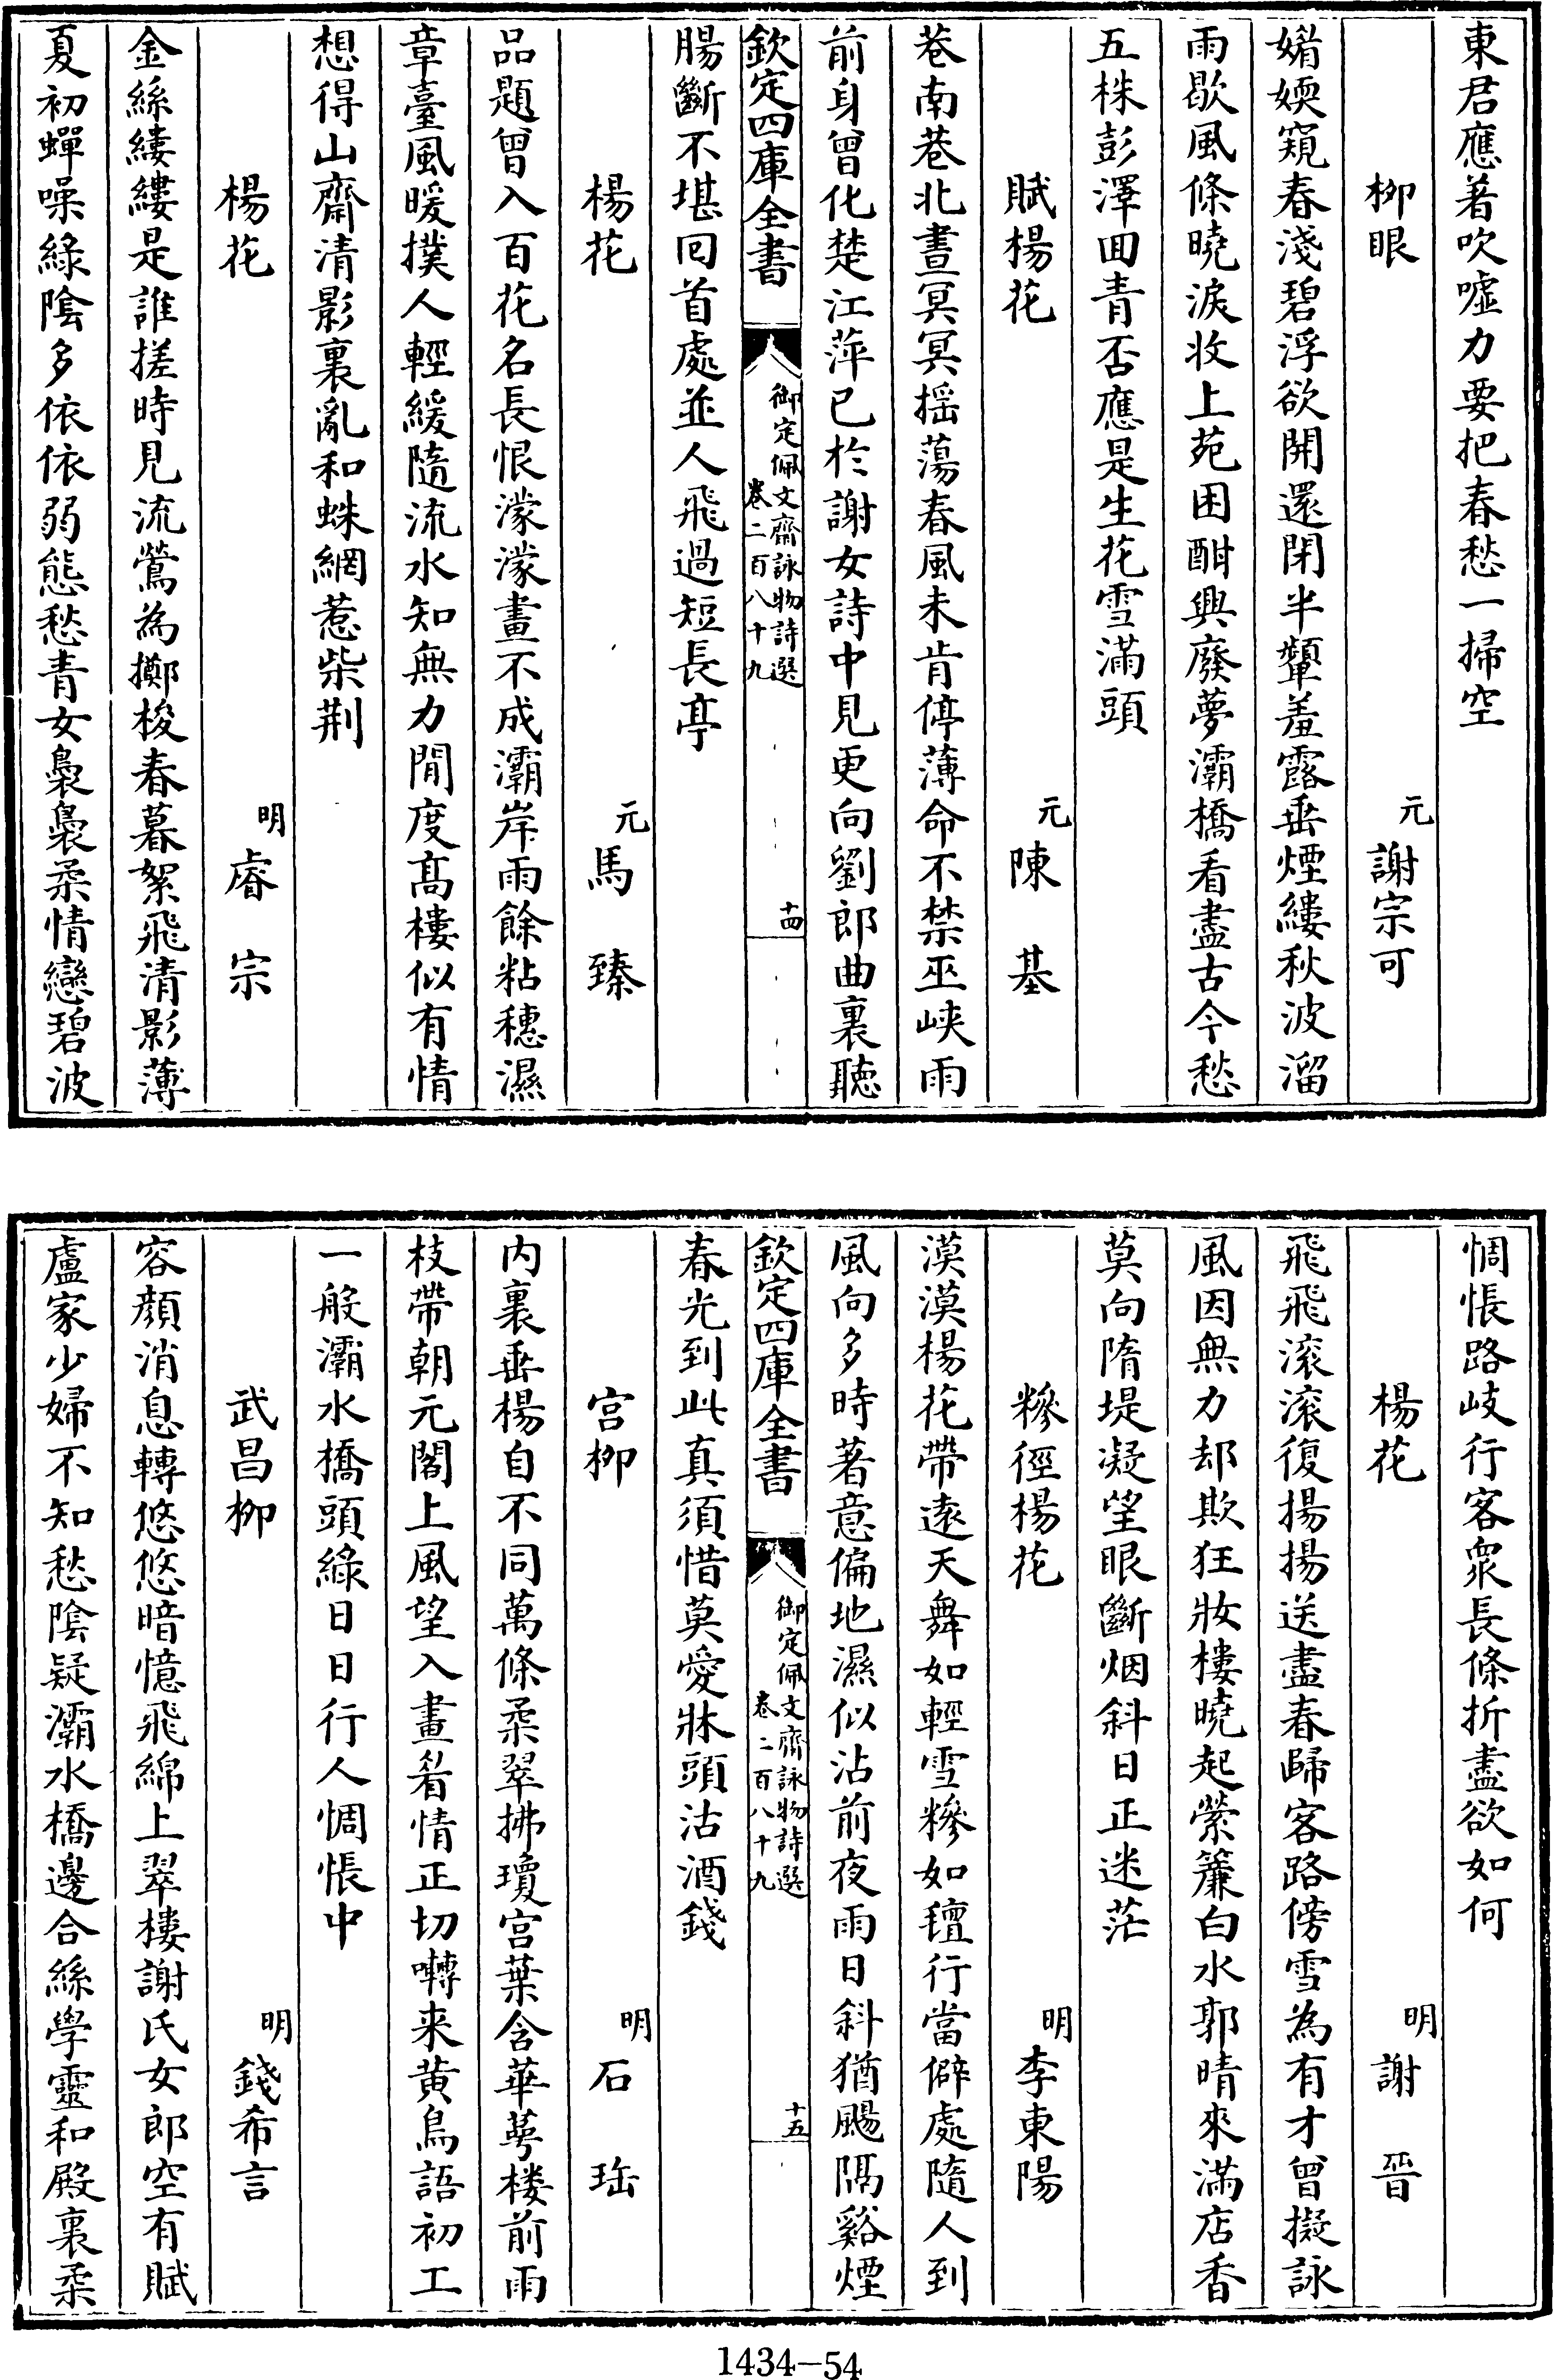 東君應著吹噓力要把春愁一掃空
栁眼　元謝宗可
媚㜫窺春淺碧浮欲開還閉半顰羞露垂煙縷秋波溜
雨歇風條曉淚收上苑困酣興廢夢灞橋看盡古今愁
五株彭澤回青否應是生花雪滿頭
賦楊花　元陳基
巷南巷北晝冥冥揺蕩春風未肯停薄命不禁巫峽雨
前身曾化楚江萍已於謝女詩中見更向劉郎曲裏聽
欽定四庫全書　御定佩文齋詠物詩選 卷二百八十九　十四
腸斷不堪回首處並人飛過短長亭
楊花　元馬臻
品題曾入百花名長恨濛濛畫不成灞岸雨餘粘穗濕
章臺風暖撲人輕緩隨流水知無力閒度髙樓似有情
想得山齋清影裏亂和蛛網惹柴荆
楊花　明睿宗
金絲縷縷是誰搓時見流鶯為擲梭春暮絮飛清影薄
夏初蟬噪綠隂多依依弱態愁青女裊裊柔情戀碧波
惆悵路岐行客衆長條折盡欲如何
楊花　明謝晉
飛飛滚滚復揚揚送盡春歸客路傍雪為有才曾擬詠
風因無力却欺狂妝樓曉起縈簾白水郭晴來滿店香
莫向隋堤凝望眼斷烟斜日正迷茫
糝徑楊花　明李東陽
漠漠楊花帶逺天舞如輕雪糝如氊行當僻處隨人到
風向多時著意偏地濕似沾前夜雨日斜猶颺隔谿煙
欽定四庫全書　御定佩文齋詠物詩選 卷二百八十九　十五
春光到此真須惜莫愛牀頭沽酒錢
宫栁　明石珤
内裏垂楊自不同萬條柔翠拂瓊宫葉含華萼楼前雨
枝帶朝元閣上風望入畫眉情正切囀来黄鳥語初工
一般灞水橋頭綠日日行人惆悵中
武昌栁　明錢希言
容顔消息轉悠悠暗憶飛綿上翠樓謝氏女郎空有賦
盧家少婦不知愁隂疑灞水橋邊合絲學靈和殿裏柔
1434-54